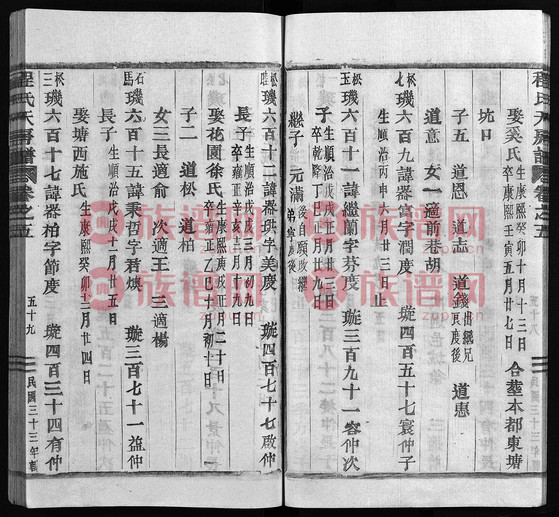 娶奚氏 生康熙癸卯十月十三日 卒康熙壬寅五月廿七日 合塟本都東塘
坵口
子五 道恩 道志 道錢 出繼兄良慶後 道惠
道意 女一適前巷胡
松七 璣六百九諱器 字潤度 璇四百五十七寰仲子
生順治丙申六月廿三日 止
松玉 璣六百十一諱繼蘭字芬度 璇三百九十一容仲次
子 生順治戊戌正月廿三日 卒乾隆丁巳正月廿九日
繼子 元滿
松 璣六百十二諱器珙字美度 璇四百七十七啟仲
長子 生順治戊戌三月初九日 卒雍正辛亥九月十九日
娶花園徐氏 生康熙庚戌正月二十日 卒雍正乙巳十月初十日
子二 道松 道柏
女三長適俞 次適王 三適楊
石馬 璣六百十五諱秉哲字君煥 璇三百七十一益仲
長子 生順治戊戌十一月 五日 卒
娶塘西施氏 生康熙 卒康熙癸卯二月廿四日
松三 璣六百十七諱器柏字節度 璇四百三十四有仲
程氏 卷之五
五十九
民國三十三年輯
族谱网